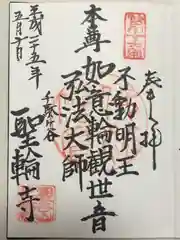 奉拝
不動明王
本尊 如意輪観世音
弘法大師
千駄ヶ谷
聖輪寺
平成二十五年
五月十日